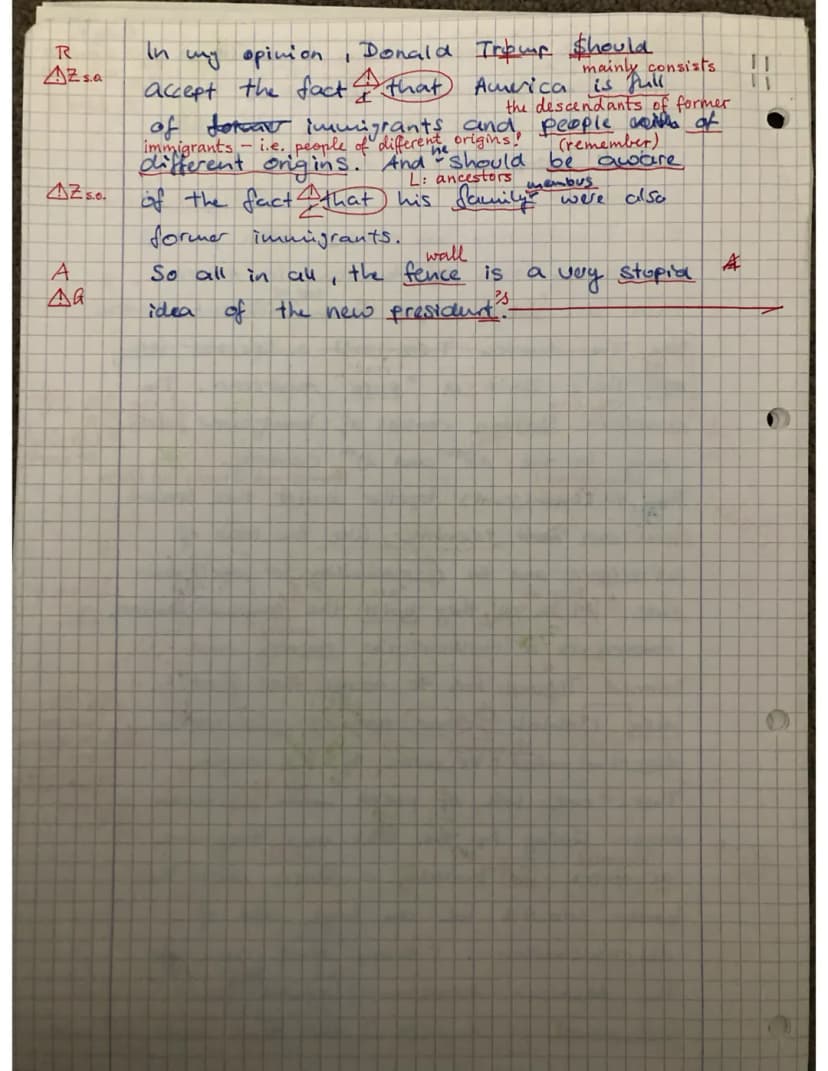 R In my opinion, Donald Trump should
mainly consists
⚠Z s.o. accept the fact ⚠ that America is full
the descendants of former
of immigrants and people of
immigrants – i.e. people of different origins! he (remember)
different origins. And should be aware
L: ancestors members
⚠Z s.o. of the fact ⚠ that his family were also
former immigrants.
wall
A So all in all, the fence is a very stupid
⚠G idea of the new president's.